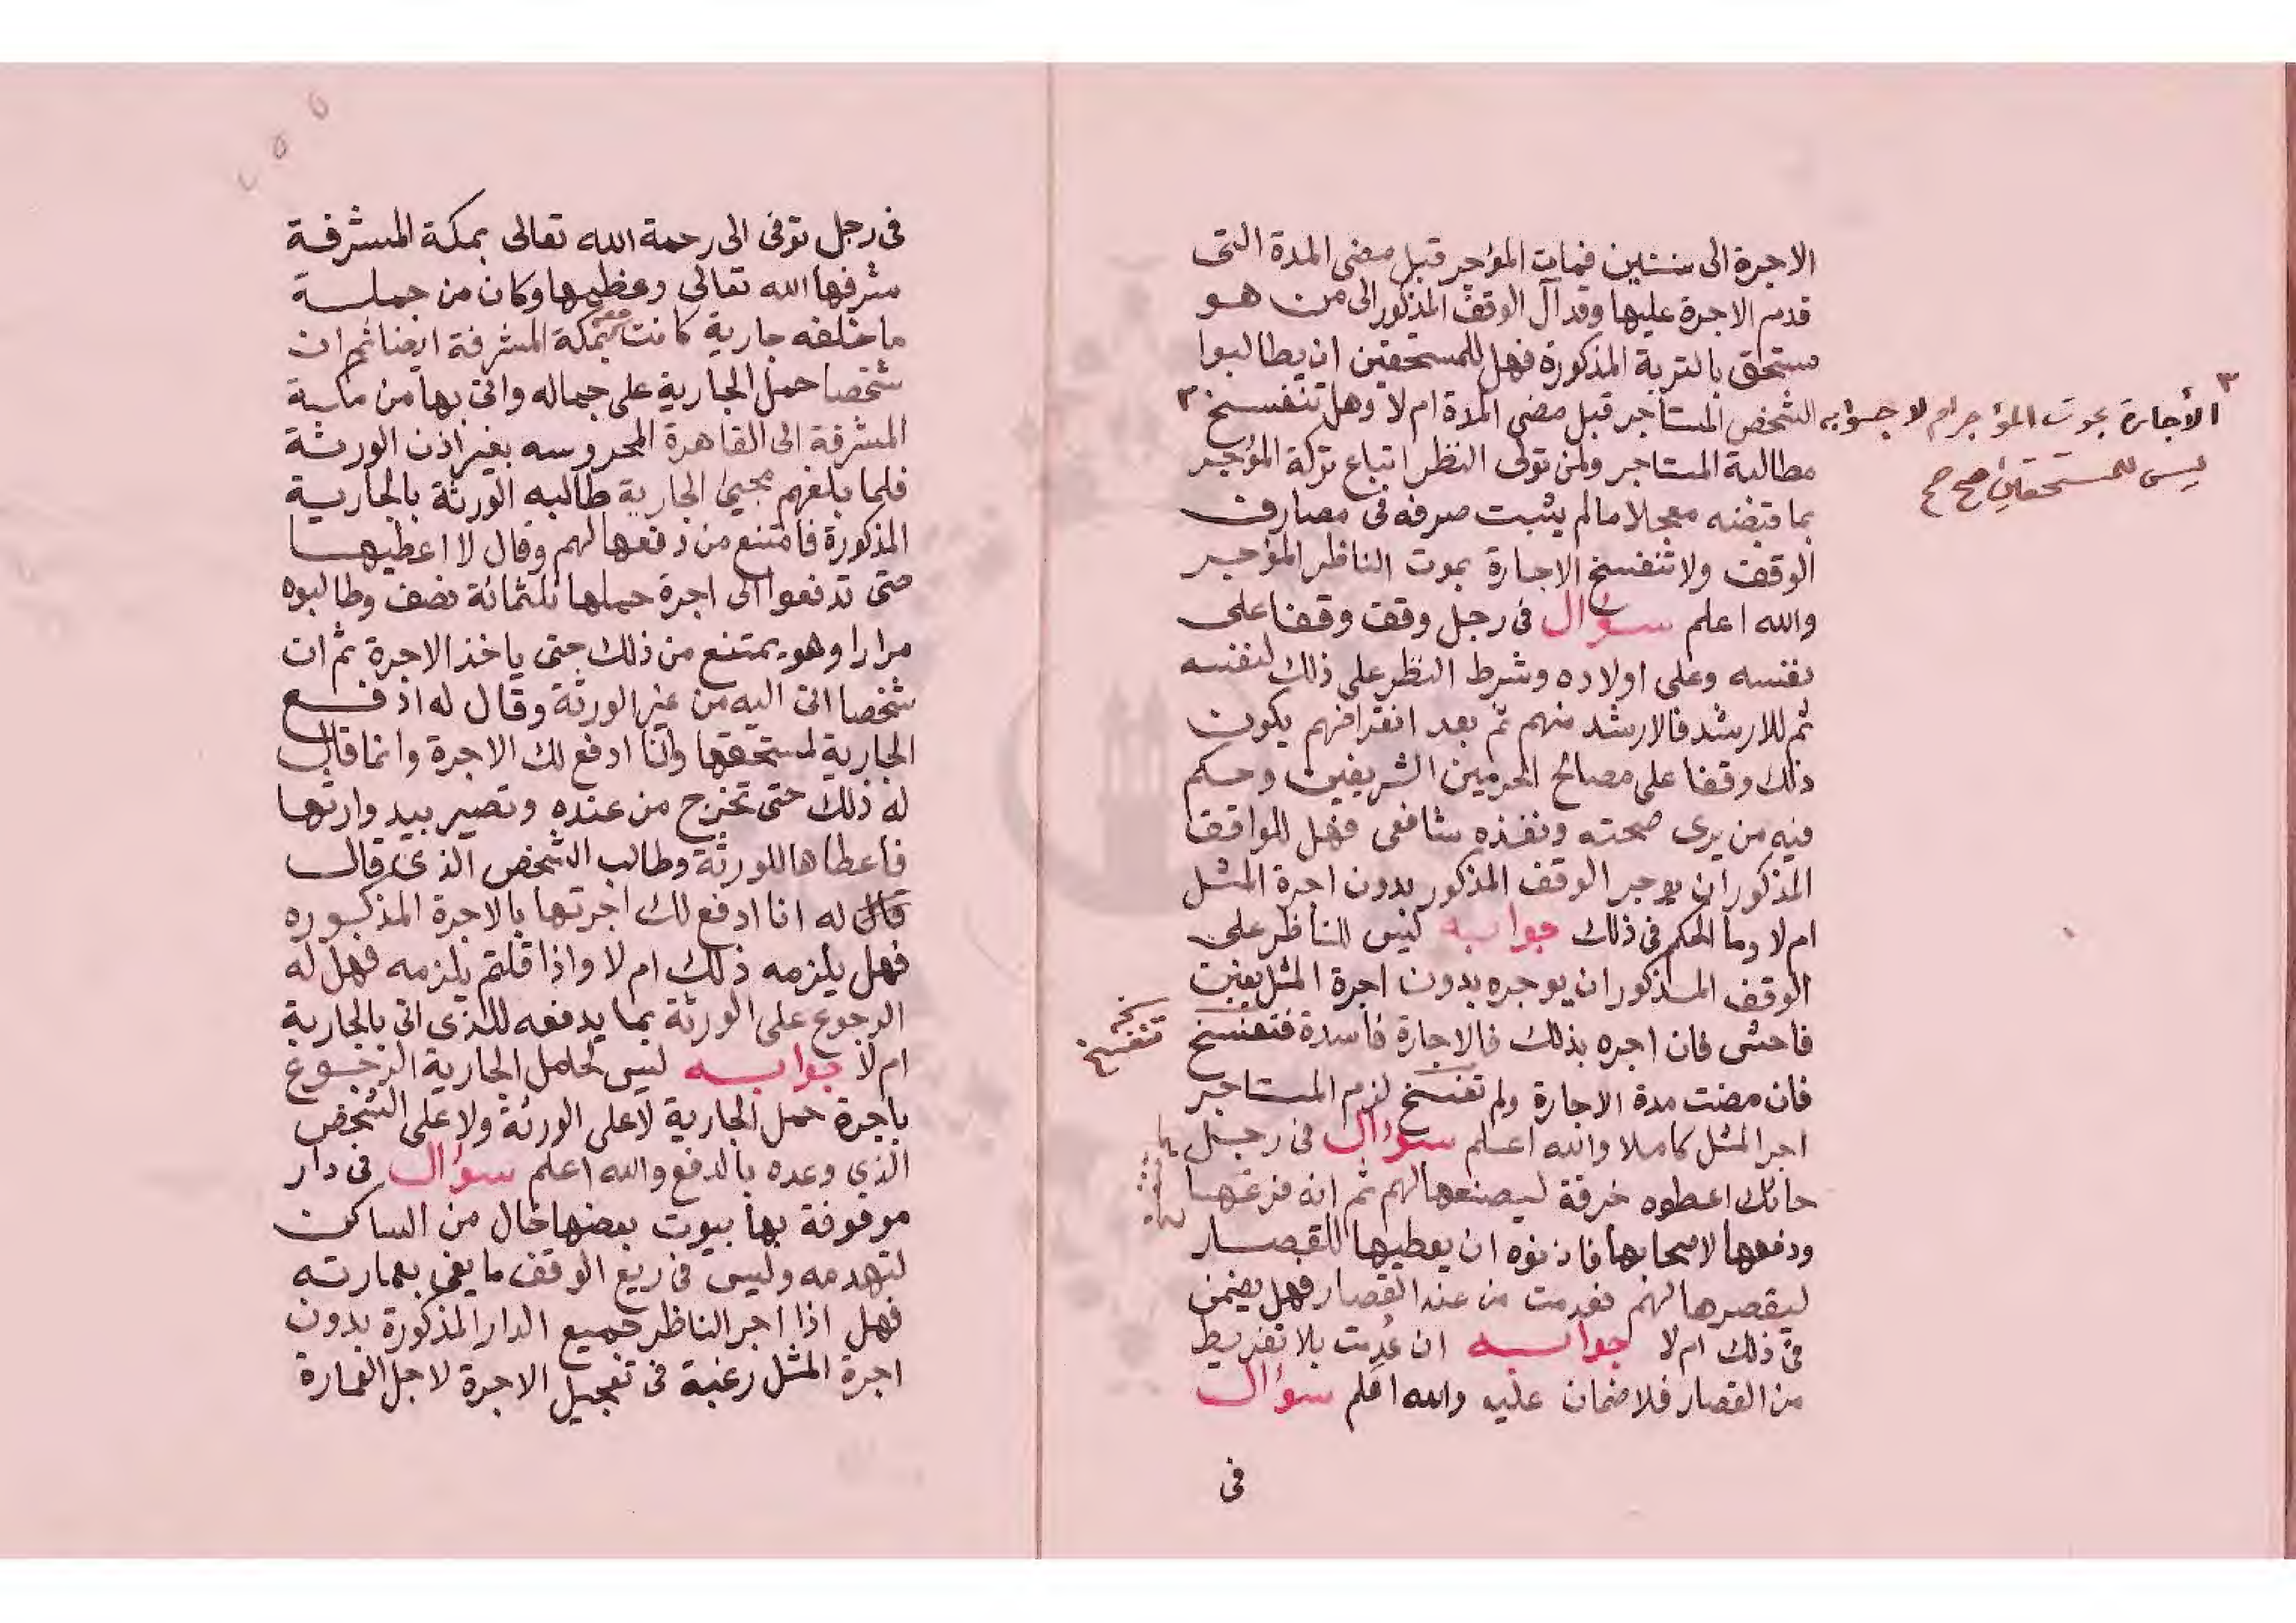 الاجرة الى سنتين فمات المؤجر قبل مضى المدة التى
قدم الاجرة عليها وقد آل الوقف المذكور الى من هو
مستحق بالتربة المذكورة فهل للمستحقين ان يطالبوا
الشخص المستأجر قبل مضى المدة ام لا وهل تنفسخ ٣
٣ الأجارة بموت المؤجر ام لا جوابه
ليس للمستحقين صح صح
مطالبة المستاجر ولمن تولى النظر اتباع تركة المؤجر
بما قبضه معجلا مالم يثبت صرفه فى مصارف
الوقف ولا تنفسخ الاجارة بموت الناظر المؤجر
والله اعلم سؤال فى رجل وقف وقفا على
نفسه وعلى اولاده وشرط النظر على ذلك لنفسه
ثم للارشد فالارشد منهم ثم بعد انقراضهم يكون
ذلك وقفا على مصالح الحرمين الشريفين وحكم
فيه من يرى صحته ونفذه شافعى فهل للواقف
المذكور ان يوجر الوقف المذكور بدون اجرة المثل
ام لا وما الحكم فى ذلك جوابه ليس للناظر على
الوقف المذكور ان يوجره بدون اجرة المثل بغبن
فاحش فان اجره بذلك فالاجارة فاسدة فتفسخ
نخـ تنفسخ
فان مضت مدة الاجارة ولم تفسخ لزم المستاجر
اجر المثل كاملا والله اعلم سؤال فى رجل
حائك اعطوه خرقة ليصنعها لهم ثم انه فرغها
ودفعها لاصحابها فاذنوه ان يعطيها للقصار
ليقصرها لهم فعدمت من عند القصار فهل يضمن
فى ذلك ام لا جوابه ان عُدِمت بلا تفريط
من القصار فلا ضمان عليه والله اعلم سؤال
فى
فى رجل توفى الى رحمة الله تعالى بمكة المشرفة
شرفها الله تعالى وعظمها وكان من جملة
ما خلفه جارية كانت معه بمكة المشرفة ايضا ثم ان
شخصا حمل الجارية على جماله واتى بها من مكة
المشرفة الى القاهرة المحروسه بغير اذن الورثة
فلما بلغهم مجيئ الجارية طالبه الورثة بالجارية
المذكورة فامتنع من دفعها لهم وقال لا اعطيها
حتى تدفعوا الى اجرة حملها ثلثمائة نصف وطالبوه
مرارا وهو يمتنع من ذلك حتى ياخذ الاجرة ثم ان
شخصا اتى اليه من غير الورثة وقال له ادفع
الجارية لمستحقها وانا ادفع لك الاجرة وانما قال
له ذلك حتى تخرج من عنده وتصير بيد وارثها
فاعطاها للورثة وطالب الشخص الذى قال
قال له انا ادفع لك اجرتها بالاجرة المذكوره
فهل يلزمه ذلك ام لا واذا قلتم يلزمه فهل له
الرجوع على الورثة بما يدفعه للذى اتى بالجارية
ام لا جوابه ليس لحامل الجارية الرجوع
باجرة حمل الجارية لا على الورثة ولا على الشخص
الذي وعده بالدفع والله اعلم سؤال فى دار
موقوفة بها بيوت بعضها خال من الساكن
لتهدمه وليس فى ريع الوقف ما يفى بعمارته
فهل اذا اجر الناظر جميع الدار المذكورة بدون
اجرة المثل رغبة فى تعجيل الاجرة لاجل العمارة